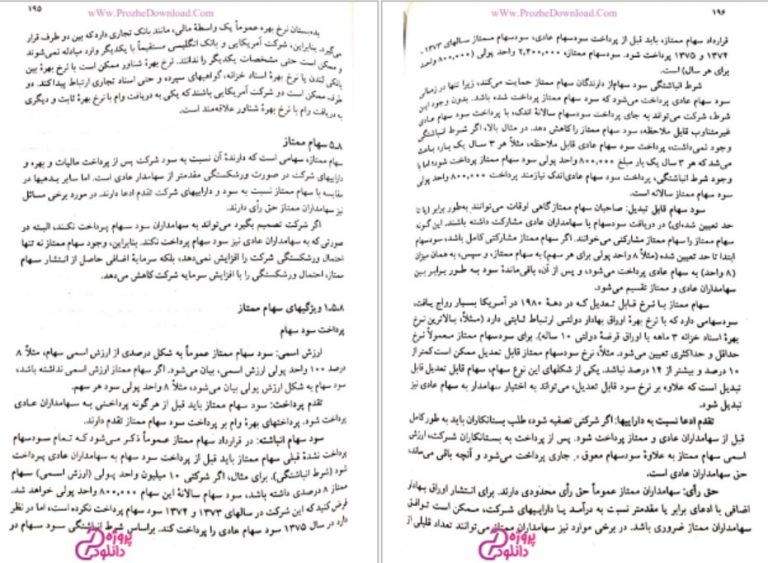 www.ProzheDownload.Com
۱۹۵
بده‌بستان نرخ بهره عموماً یک واسطهٔ مالی، مانند بانک تجاری دارد که بین دو طرف قرار
می‌گیرد. بنابراین، شرکت آمریکایی و بانک انگلیسی مستقیماً با یکدیگر وارد مبادله نمی‌شوند
و ممکن است حتی مشخصات یکدیگر را ندانند. نرخ بهرهٔ شناور ممکن است با نرخ بهرهٔ بین
بانکی لندن یا نرخ بهرهٔ اسناد خزانه، گواهیهای سپرده و حتی اسناد تجاری ارتباط پیدا کند. دو
طرف ممکن است دو شرکت آمریکایی باشند که یکی به دریافت وام با نرخ بهرهٔ ثابت و دیگری
به دریافت وام با نرخ بهرهٔ شناور علاقه‌مند است.
۵ـ۸ سهام ممتاز
سهام ممتاز، سهامی است که دارندهٔ آن نسبت به سود شرکت پس از پرداخت مالیات و بهره و
داراییهای شرکت در صورت ورشکستگی مقدم‌تر از سهامدار عادی است. اما سایر بدهیها در
مقایسه با سهام ممتاز نسبت به سود و داراییهای شرکت تقدم ادعا دارند. در مورد برخی مسائل
نیز سهامداران ممتاز حق رأی دارند.
اگر شرکت تصمیم بگیرد می‌تواند به سهامداران سود سهام پرداخت نکند، البته در
صورتی که به سهامداران عادی نیز سود سهام پرداخت نکند. بنابراین، وجود سهام ممتاز نه تنها
احتمال ورشکستگی شرکت را افزایش نمی‌دهد، بلکه سرمایهٔ اضافی حاصل از انتشار سهام
ممتاز، احتمال ورشکستگی را با افزایش سرمایه شرکت کاهش می‌دهد.
۱ـ۵ـ۸ ویژگیهای سهام ممتاز
پرداخت سود سهام
ارزش اسمی: سود سهام ممتاز عموماً به شکل درصدی از ارزش اسمی سهام، مثلاً ۸
درصد ۱۰۰ واحد پولی ارزش اسمی، بیان می‌شود. اگر سهام ممتاز ارزش اسمی نداشته باشد،
سود سهام به شکل ارزش پولی بیان می‌شود، مثلاً ۸ واحد پولی سود هر سهم.
تقدم پرداخت: سود سهام ممتاز باید قبل از هر گونه پرداختی به سهامداران عادی
پرداخت شود. پرداختهای بهرهٔ وام بر پرداخت سود سهام ممتاز تقدم دارند.
سود سهام انباشته: در قرارداد سهام ممتاز عموماً ذکر می‌شود که تمام سودسهام
پرداخت نشدهٔ قبلی سهام ممتاز باید قبل از پرداخت سود سهام به سهامداران عادی پرداخت
شود (شرط انباشتگی). برای مثال، اگر شرکتی ۱۰ میلیون واحد پولی (ارزش اسمی) سهام
ممتاز ۸ درصدی داشته باشد، سود سهام سالانهٔ این سهام ۸۰۰,۰۰۰ واحد پولی خواهد شد.
فرض کنید که این شرکت در سالهای ۱۳۷۳ و ۱۳۷۴ سود سهام پرداخت نکرده است، اما در نظر
دارد در سال ۱۳۷۵ سود سهام عادی را پرداخت کند. براساس شرط انباشتگی سود سهام دو
پروژه
دانلود
www.ProzheDownload.Com
۱۹۶
قرارداد سهام ممتاز، باید قبل از پرداخت سودسهام عادی، سودسهام ممتاز سالهای ۱۳۷۳،
۱۳۷۴ و ۱۳۷۵ پرداخت شود. سودسهام ممتاز، ۲,۴۰۰,۰۰۰ واحد پولی (۸۰۰,۰۰۰ واحد
برای هر سال) است.
شرط انباشتگی سود سهام از دارندگان سهام ممتاز حمایت می‌کند، زیرا تنها در زمانی
سود سهام عادی پرداخت می‌شود که سود سهام ممتاز پرداخت شده باشد. بدون وجود این
شرط، شرکت می‌تواند به جای پرداخت سودسهام سالانهٔ اندک، با پرداخت سود سهام عادی
غیرمتناوب قابل ملاحظه، سود سهام ممتاز را کاهش دهد. در مثال بالا، اگر شرط انباشتگی
وجود نمی‌داشت، پرداخت سود سهام عادی قابل ملاحظه، مثلاً هر ۳ سال یک بار، باعث
می‌شد که هر ۳ سال یک بار مبلغ ۸۰۰,۰۰۰ واحد پولی سود سهام ممتاز پرداخت شود؛ اما با
وجود شرط انباشتگی، پرداخت سود سهام عادی اندک نیازمند پرداخت ۸۰۰,۰۰۰ واحد پولی
سود سهام ممتاز سالانه است.
سود سهام قابل تبدیل: صاحبان سهام ممتاز گاهی اوقات می‌توانند به‌طور برابر (یا تا
حد تعیین شده‌ای) در دریافت سودسهام با سهامداران عادی مشارکت داشته باشند. این گونه
سهام ممتاز را سهام ممتاز مشارکتی می‌خوانند. اگر سهام ممتاز مشارکتی کامل باشد، سودسهام
ابتدا تا حد تعیین شده (مثلاً ۸ واحد پولی برای هر سهم) به سهام ممتاز، و سپس، به همان میزان
(۸ واحد) به سهام عادی پرداخت می‌شود، و پس از آن، باقی‌ماندهٔ سود به طور برابر بین
سهامداران عادی و ممتاز تقسیم می‌شود.
سهام ممتاز با نرخ قابل تعدیل که در دههٔ ۱۹۸۰ در آمریکا بسیار رواج یافت،
سودسهامی دارد که با نرخ بهرهٔ اوراق بهادار دولتی ارتباط ثابتی دارد (مثلاً، بالاترین نرخ
بهرهٔ اسناد خزانه ۳ ماهه یا اوراق قرضهٔ دولتی ۱۰ ساله). برای سودسهام ممتاز معمولاً نرخ
حداقل و حداکثری تعیین می‌شود. مثلاً، نرخ سودسهام ممتاز قابل تعدیل ممکن است کمتر از
۱۰ درصد و بیشتر از ۱۴ درصد نباشد. یکی از شکلهای این نوع سهام، سهام قابل تعدیل قابل
تبدیل است که علاوه بر نرخ سود قابل تعدیل، می‌تواند به اختیار سهامدار به سهام عادی نیز
تبدیل شود.
تقدم ادعا نسبت به داراییها: اگر شرکتی تصفیه شود، طلب بستانکاران باید به طور کامل
قبل از سهامداران عادی و ممتاز پرداخت شود. پس از پرداخت به بستانکاران شرکت، ارزش
اسمی سهام ممتاز به علاوهٔ سودسهام معوق و جاری پرداخت می‌شود و آنچه باقی می‌ماند،
حق سهامداران عادی است.
حق رأی: سهامداران ممتاز عموماً حق رأی محدودی دارند. برای انتشار اوراق بهادار
اضافی با ادعای برابر یا مقدم‌تر نسبت به درآمد یا داراییهای شرکت، ممکن است توافق
سهامداران ممتاز ضروری باشد. در برخی موارد نیز سهامداران ممتاز می‌توانند تعداد قلیلی از
پروژه
دانلود